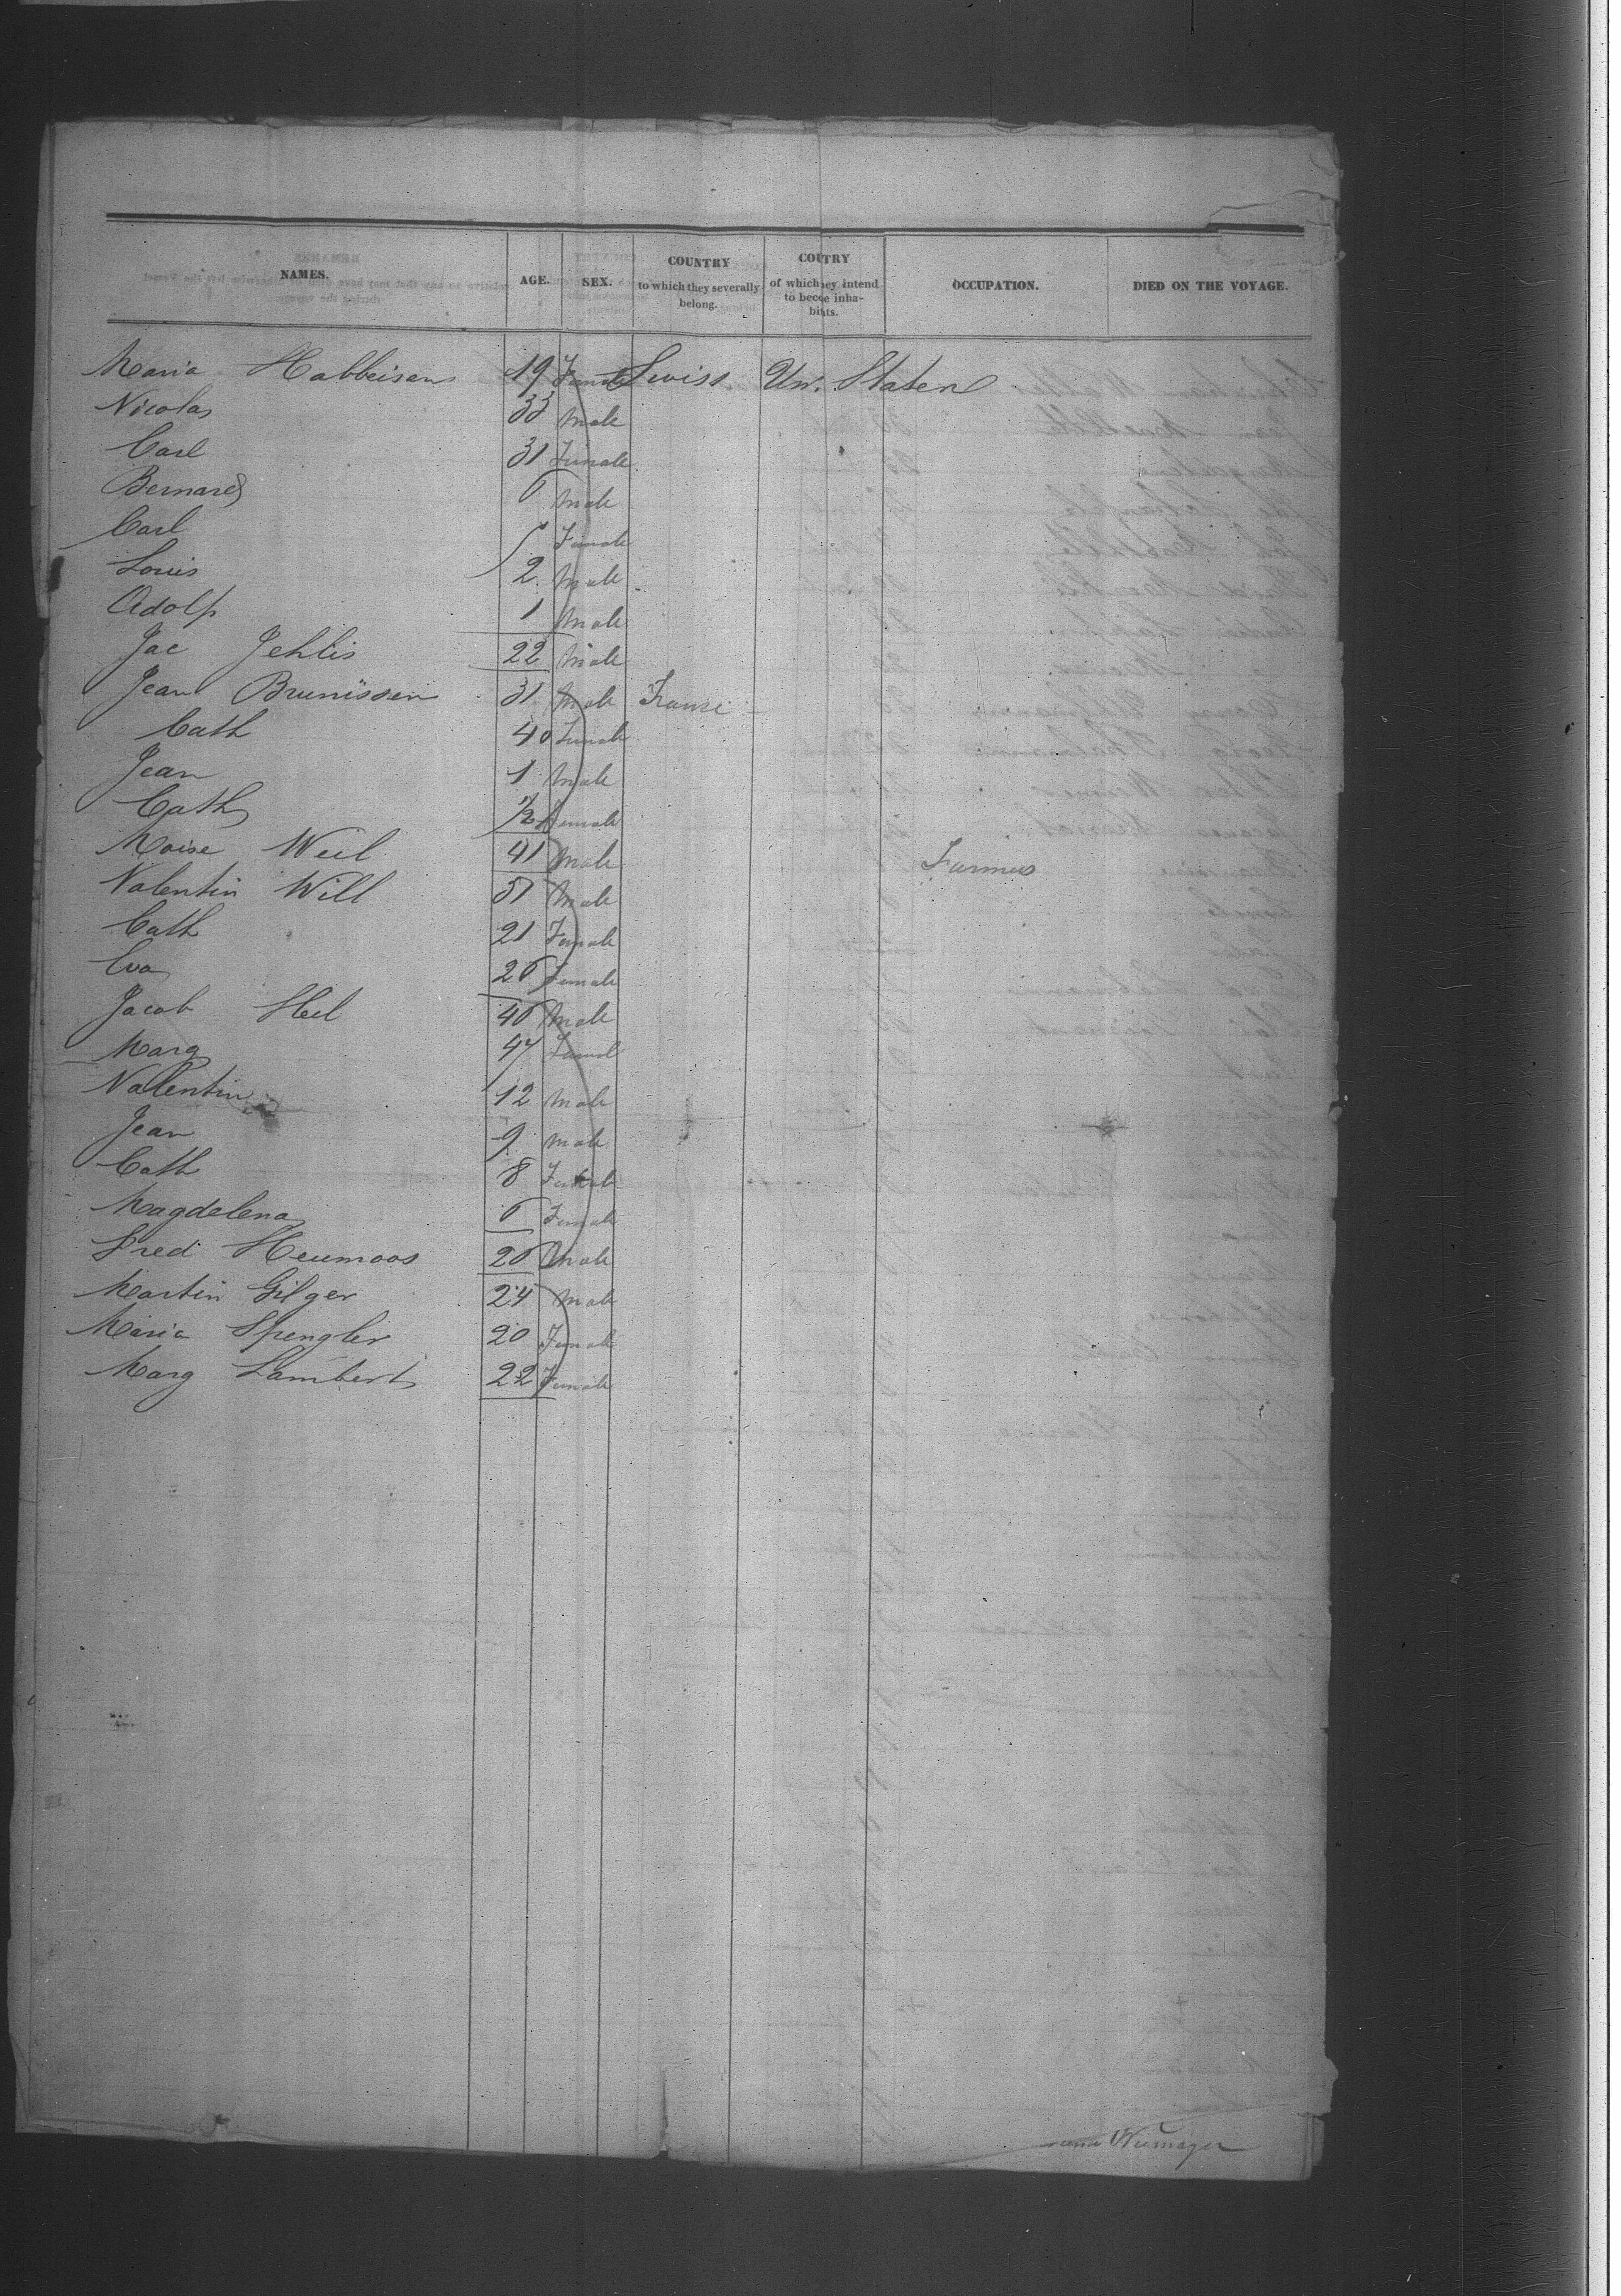 NAMES. AGE. SEX. COUNTRY to which they severally belong. COUTRY of which ey intend to becoe inha- bits. OCCUPATION. DIED ON THE VOYAGE.
Maria Habbeisen 19 Female Swiss Un. Staten
Nicolas 33 Male
Carl 31 Female
Bernard 6 Male
Carl 5 Female
Louis 2. Male
Adolf 1 Male
Jac Jehlis 22 Male
Jean Brunissen 31 Male
Cath 40 Female
Jean 1 Male
Cath Female
Moise Weil 41 Male Farmer
Valentin Will 51 Male
Cath 21 Female
Eva 26 Female
Jacob Heil 46 Male
Marg 47
Valentin 12 Male
Jean 9 Male
Cath 8 Female
Magdelena 6 Female
Fred Heumoos 26 Male
Martin Gilger 24 Male
Maria Spengler 20 Female
Marg Lambert 22 Female